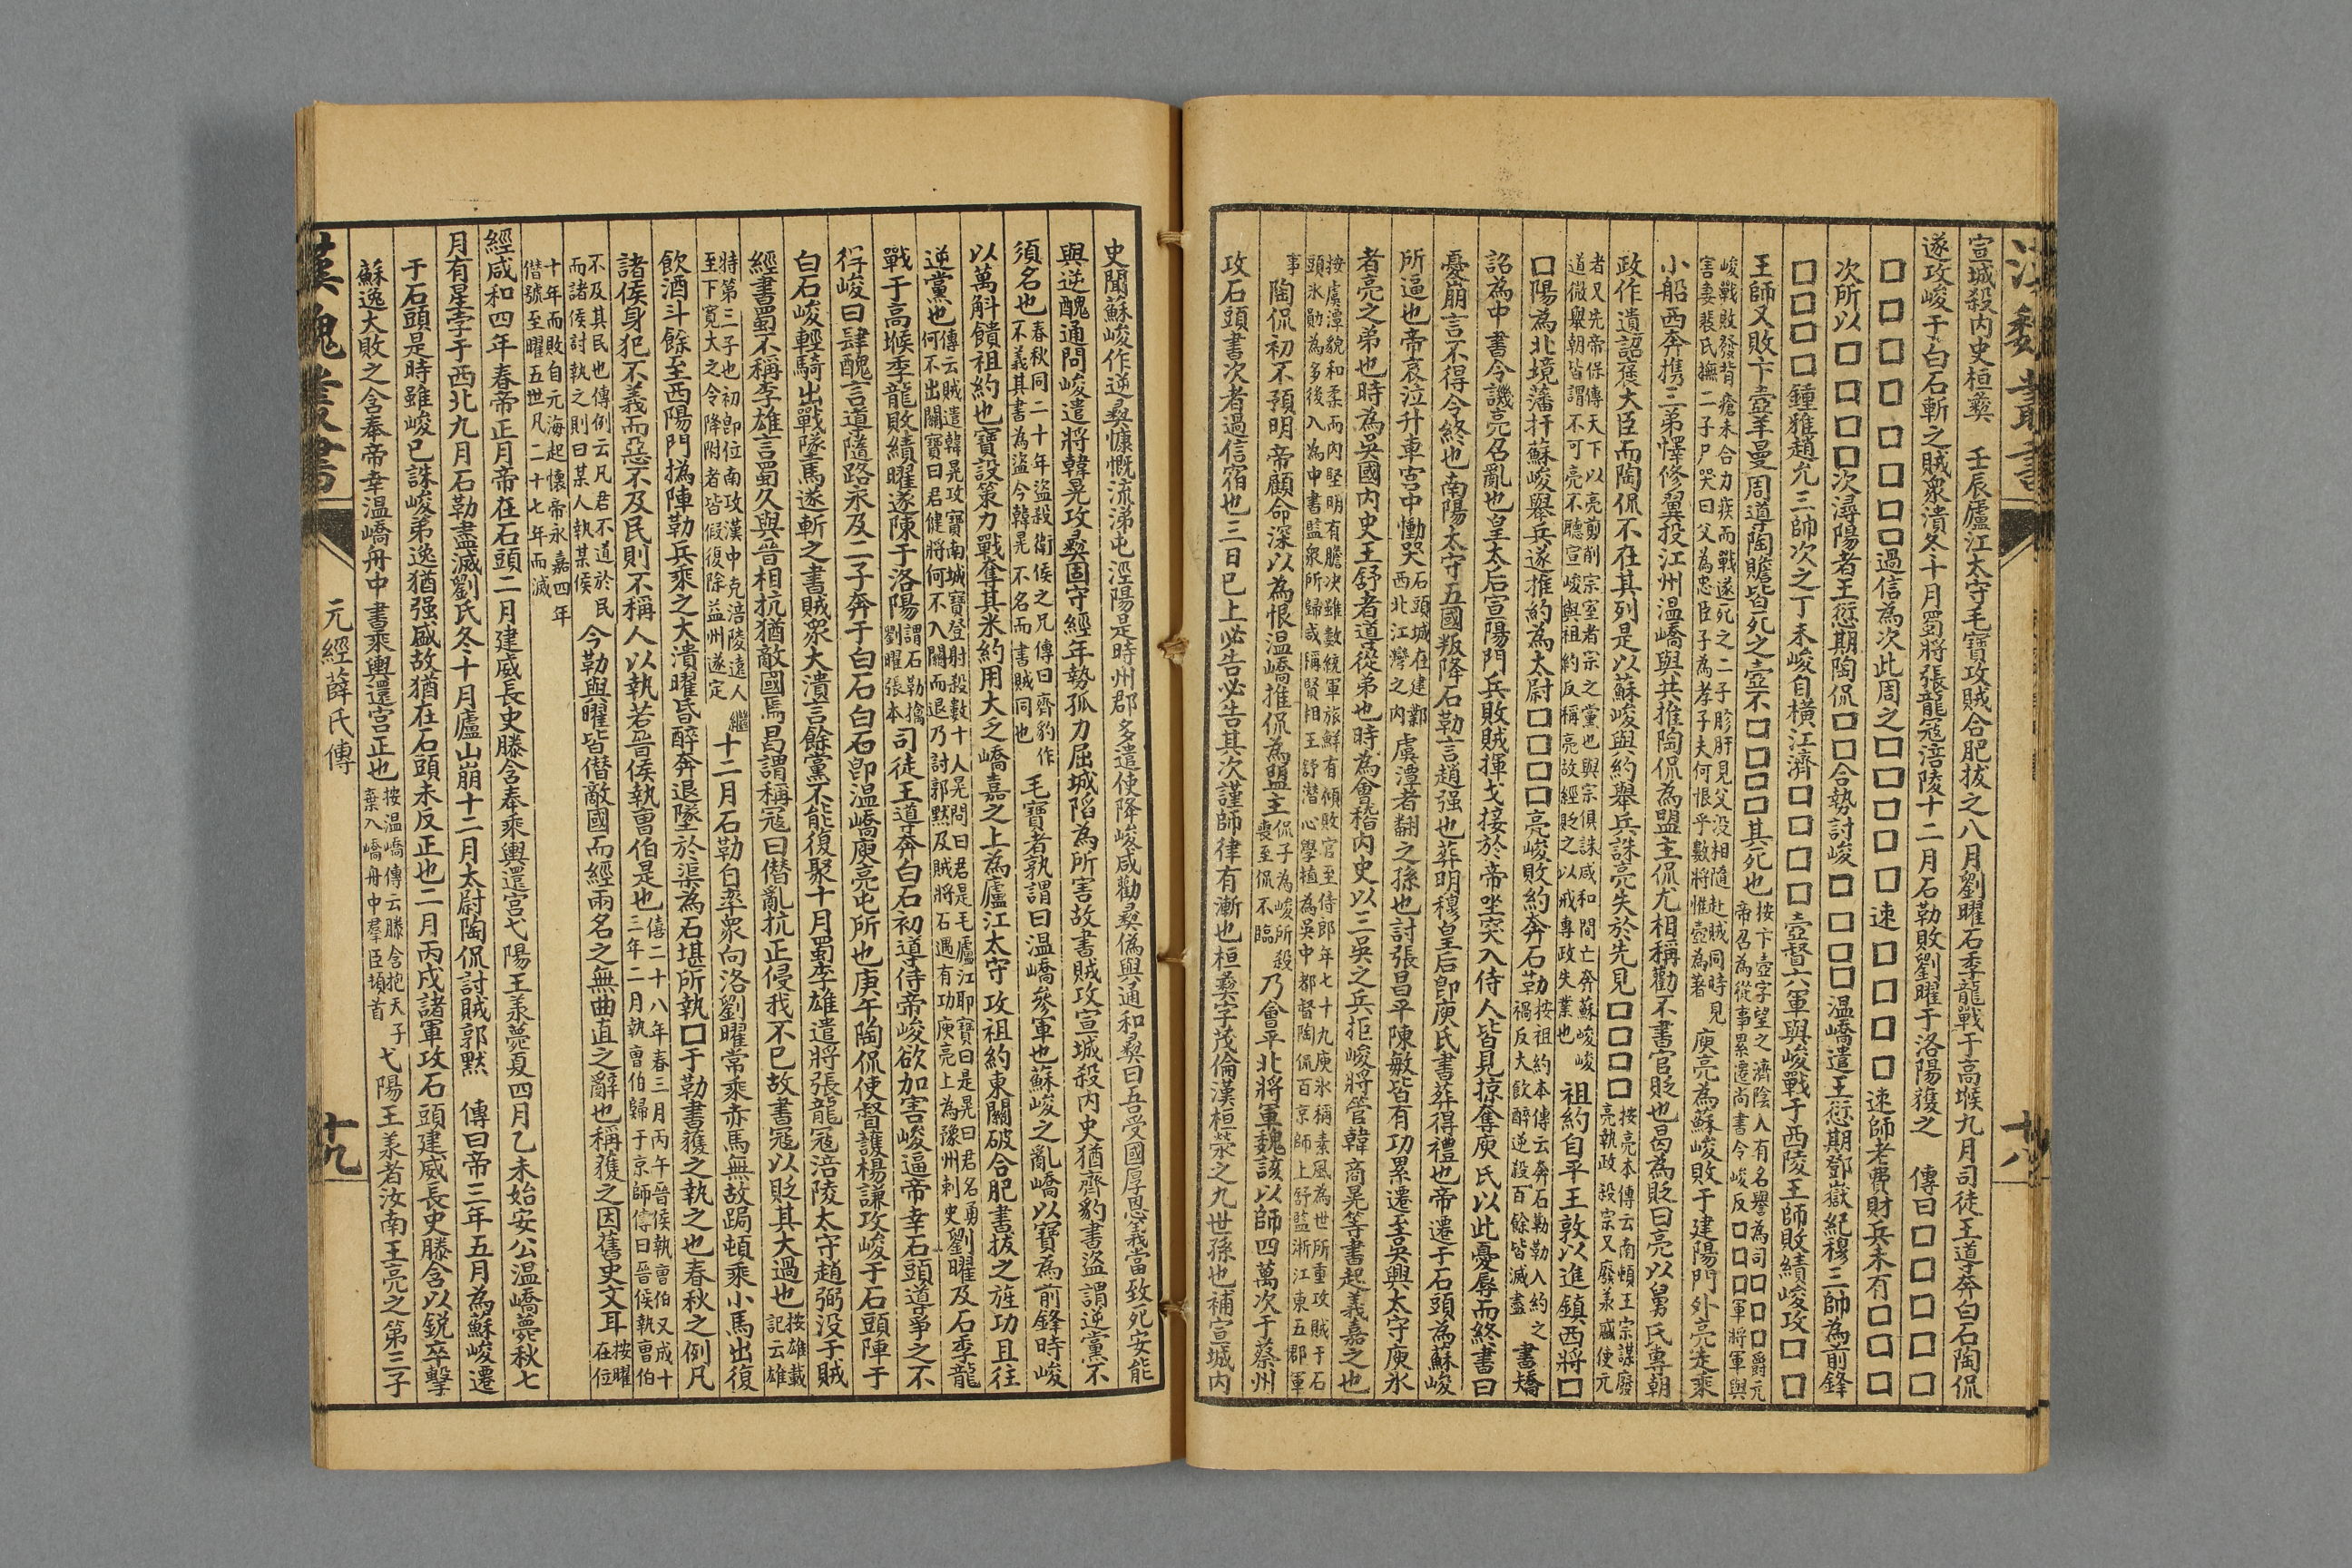 宣城殺内史桓彝　壬辰廬江太守毛寶攻賊合肥拔之八月劉曜石季龍戰于高堠九月司徒王導奔白石陶侃
遂攻峻于白石斬之賊衆潰冬十月蜀將張龍寇涪陵十二月石勒敗劉曜于洛陽獲之　傳曰□□□□□
□□□□□□□□過信為次此周之□□□□□速□□□□速師老費財兵未有□□□
次所以□□□□□次潯陽者王愆期陶侃□□合勢討峻□□□□溫嶠遣王愆期鄧嶽紀穆三帥為前鋒
□□□□鍾雅趙允三帥次之丁未峻自橫江濟□□□□壺督六軍與峻戰于西陵王師敗績峻攻□□
王師又敗卞壺羊曼周導陶瞻皆死之壺不□□□□其死也按卞壺字望之濟陰人有名譽為司□□□爵元
帝召為從事累遷尚書令峻反□□□□軍將軍與
峻戰敗發背瘡未合力疾而戰遂死之二子眕肝見父没相隨赴賊同時見
害妻裴氏撫二子尸哭曰父為忠臣子為孝子夫何恨乎數將惟壺為著
庾亮為蘇峻敗于建陽門外亮走乘
小船西奔携三弟懌修翼投江州溫嶠與共推陶侃為盟主侃尤相稱勸不書官貶也曷為貶曰亮以舅氏專朝
政作遺詔褒大臣而陶侃不在其列是以蘇峻與約舉兵誅亮失於先見□□□□按亮本傳云南頓王宗謀廢
亮執政殺宗又廢羕慼使元
者又先帝保傳天下以亮剪削宗室者宗之黨也與宗俱誅咸和間亡奔蘇峻峻
道微舉朝皆謂不可亮不聽宣峻與祖約反稱亮故經貶之以戒專政失業也
祖約自平王敦以進鎮西將□
□陽為北境藩扞蘇峻舉兵遂推約為太尉□□□□亮峻敗約奔石勒按祖約本傳云奔石勒勒入約之
禍反大飲醉逆殺百餘皆滅盡
書矯
詔為中書令譏亮召亂也皇太后宣陽門兵敗賊揮戈接於帝坐突入侍人皆見掠奪庾氏以此憂辱而終書曰
憂崩言不得令終也南陽太守五國叛降石勒言趙强也葬明穆皇后卽庾氏書葬得禮也帝遷于石頭為蘇峻
所逼也帝哀泣升車宮中慟哭石頭城在建鄴
西北江灣之内
虞潭者翻之孫也討張昌平陳敏皆有功累遷至吳興太守庾氷
者亮之弟也時為吳國内史王舒者導從弟也時為會稽内史以三吳之兵拒峻將管韓商晃等書起義嘉之也
按虞潭貌和柔而内堅明有膽决雖數統軍旅鮮有傾敗官至侍郎年七十九庾氷稱素風為世所重攻賊于石
頭氷勛為多後入為中書監衆所歸咸稱賢相王舒潜心學植為吳中都督陶侃百京師上舒監浙江東五郡軍
事
陶侃初不預明帝顧命深以為恨溫嶠推侃為盟主侃子為峻所殺
喪至侃不臨
乃會平北將軍魏該以師四萬次于蔡州
攻石頭書次者過信宿也三日已上必告必告其次謹師律有漸也桓彝字茂倫漢桓榮之九世孫也補宣城内
漢魏叢書
十八
史聞蘇峻作逆彝慷慨流涕屯涇陽是時州郡多遣使降峻咸勸彝僞與通和彝曰吾受國厚恩義當致死安能
與逆醜通問峻遣將韓晃攻彝固守經年勢孤力屈城陷為所害故書賊攻宣城殺内史猶齊豹書盜謂逆黨不
須名也春秋同二十年盜殺衛侯之兄傳曰齊豹作
不義其書為盜今韓晃不名而書賊同也
毛寶者孰謂曰溫嶠參軍也蘇峻之亂嶠以寶為前鋒時峻
以萬斛饋祖約也寶設策力戰奪其米約用大乏嶠嘉之上為廬江太守攻祖約東關破合肥書拔之旌功且往
逆黨也傳云賊遣韓晃攻寶南城寶登射殺數十人晃問曰君是毛廬江耶寶曰是晃曰君名勇
何不出關寶曰君健將何不入關而退乃討郭默及賊將石遇有功庾亮上為豫州刺史
劉曜及石季龍
戰于高堠季龍敗績曜遂陳于洛陽謂石勒擒
劉曜張本
司徒王導奔白石初導侍帝峻欲加害峻逼帝幸石頭導爭之不
得峻曰肆醜言導隨路永及二子奔于白石白石卽溫嶠庾亮屯所也庚午陶侃使督護楊謙攻峻于石頭陣于
白石峻輕騎出戰墜馬遂斬之書賊衆大潰言餘黨不能復聚十月蜀李雄遣將張龍寇涪陵太守趙弼没于賊
經書蜀不稱李雄言蜀久與晉相抗猶敵國焉曷謂稱寇曰僭亂抗正侵我不已故書寇以貶其大過也按雄載
記云雄
特第三子也初卽位南攻漢中克涪陵遠人
至下寬大之令降附者皆假復除益州遂定
繼十二月石勒自率衆向洛劉曜常乘赤馬無故跼頓乘小馬出復
飲酒斗餘至西陽門撝陣勒兵乘之大潰曜昏醉奔退墜於渠為石堪所執□于勒書獲之執之也春秋之例凡
諸侯身犯不義而惡不及民則不稱人以執若晉侯執曹伯是也僖二十八年春三月丙午晉侯執曹伯又成十
三年二月執曹伯歸于京師傳曰晉侯執曹伯
不及其民也傳例云凡君不道於民
而諸侯討執之則曰某人執某侯
今勒與曜皆僭敵國而經兩名之無曲直之辭也稱獲之因舊史文耳按曜
在位
十年而敗自元海起懷帝永嘉四年
僭號至曜五世凡二十七年而滅
經咸和四年春帝正月帝在石頭二月建威長史滕含奉乘輿還宮弋陽王羕薨夏四月乙未始安公溫嶠薨秋七
月有星孛于西北九月石勒盡滅劉氏冬十月廬山崩十二月太尉陶侃討賊郭默　傳曰帝三年五月為蘇峻遷
于石頭是時雖峻已誅峻弟逸猶强盛故猶在石頭未反正也二月丙戌諸軍攻石頭建威長史滕含以銳卒擊
蘇逸大敗之含奉帝幸溫嶠舟中書乘輿還宮正也按溫嶠傳云滕含抱天子
棄入嶠舟中羣臣頓首
弋陽王羕者汝南王亮之第三子
漢魏叢書
元經薛氏傳
十九